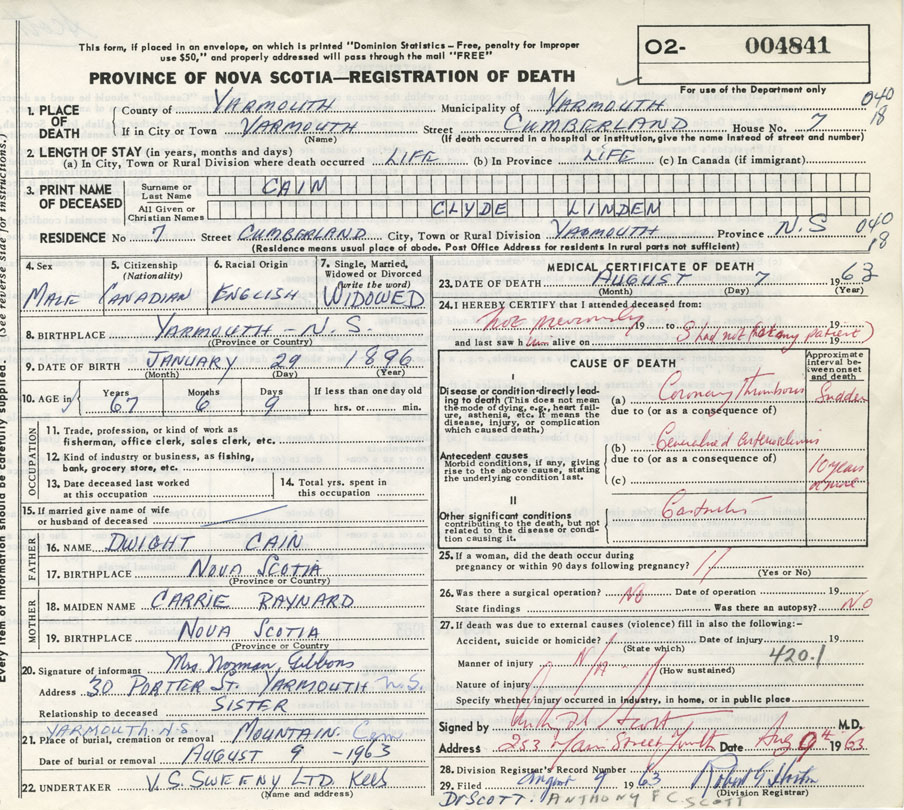 This form, if placed in an envelope, on which is printed "Dominion Statistics – Free, penalty for Improper
use $50," and properly addressed will pass through the mail "FREE"
O2- 004841
PROVINCE OF NOVA SCOTIA—REGISTRATION OF DEATH
For use of the Department only
1. PLACE OF DEATH
County of YARMOUTH Municipality of YARMOUTH 040
If in City or Town YARMOUTH Street CUMBERLAND House No. 7 18
(Name) (If death occurred in hospital or institution, give the name instead of street and number)
2. LENGTH OF STAY (in years, months and days)
(a) In City, Town or Rural Division where death occurred LIFE (b) In Province LIFE (c) In Canada (if immigrant)
3. PRINT NAME OF DECEASED
Surname or Last Name CAIN
All Given or Christian Names CLYDE LINDEN
RESIDENCE No 7 Street CUMBERLAND City, Town or Rural Division YARMOUTH Province N.S 040
(Residence means usual place of abode. Post Office Address for residents in rural parts not sufficient) 18
4. Sex MALE
5. Citizenship (Nationality) CANADIAN
6. Racial Origin ENGLISH
7. Single, Married, Widowed or Divorced (write the word) WIDOWED
8. BIRTHPLACE YARMOUTH – N.S.
(Province or Country)
9. DATE OF BIRTH JANUARY 29 1896
(Month) (Day) (Year)
10. AGE in Years 67 Months 6 Days 9 If less than one day old hrs. or min.
OCCUPATION
11. Trade, profession, or kind of work as
fisherman, office clerk, sales clerk, etc.
12. Kind of industry or business, as fishing,
bank, grocery store, etc.
13. Date deceased last worked
at this occupation
14. Total yrs. spent in
this occupation
15. If married give name of wife
or husband of deceased
FATHER
16. NAME DWIGHT CAIN
17. BIRTHPLACE NOVA SCOTIA
(Province or Country)
MOTHER
18. MAIDEN NAME CARRIE RAYNARD
19. BIRTHPLACE NOVA SCOTIA
(Province or Country)
20. Signature of informant Mrs Norman Gibbons
Address 30 PORTER ST. YARMOUTH N.S.
Relationship to deceased SISTER
YARMOUTH. N.S.
21. Place of burial, cremation or removal MOUNTAIN Cem
Date of burial or removal AUGUST 9 – 1963
22. UNDERTAKER V. S. SWEENY LTD.
(Name and address)
MEDICAL CERTIFICATE OF DEATH
23. DATE OF DEATH AUGUST 7 1963
(Month) (Day) (Year)
24. I HEREBY CERTIFY that I attended deceased from:
not previously 19 to 19
and last saw h him alive on 19
(not my patient)
CAUSE OF DEATH
Approximate interval between onset and death
I
Disease or condition directly leading to death (This does not mean the mode of dying, e.g., heart failure, asthenia, etc. It means the disease, injury, or complication which caused death.)
(a) Coronary thrombosis Sudden
due to (or as a consequence of)
Antecedent causes
Morbid conditions, if any, giving rise to the above cause, stating the underlying condition last.
(b) Generalised arteriosclerosis
due to (or as a consequence of)
(c) 10 years or more
II
Other significant conditions
contributing to the death, but not related to the disease or condition causing it.
Gastritis
25. If a woman, did the death occur during
pregnancy or within 90 days following pregnancy?
(Yes or No)
26. Was there a surgical operation? No Date of operation 19
State findings Was there an autopsy? No
27. If death was due to external causes (violence) fill in also the following:–
Accident, suicide or homicide? Date of injury 19
(State which) 420.1
Manner of injury N/A
(How sustained)
Nature of injury
Specify whether injury occurred in Industry, in home, or in public place
Signed by M.D.
Address 253 Main Street Date Aug 9th 1963
28. Division Registrar's Record Number
29. Filed August 9 1963
(Division Registrar)
Dr SCOTT. ANTHONY F C SCOTT
Every item of information should be carefully supplied. (See reverse side for instructions.)